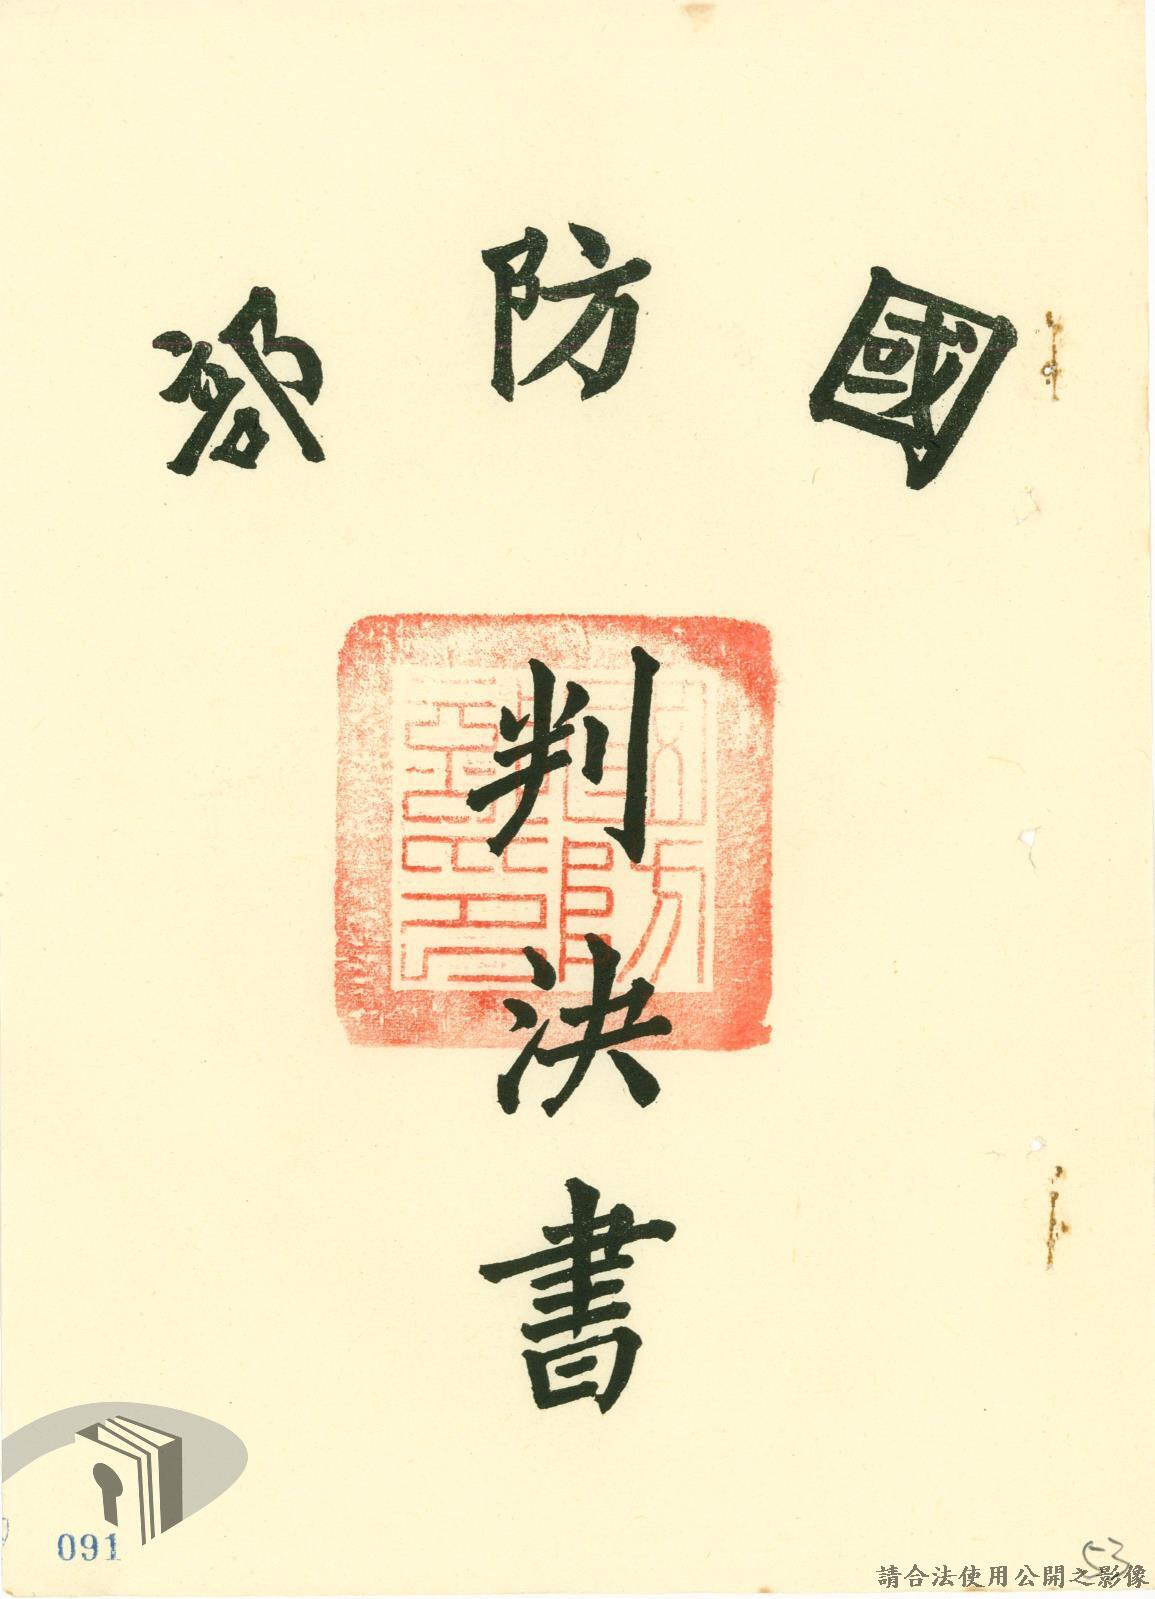 國防部
判決書
國防部印
091
53
請合法使用公開之影像